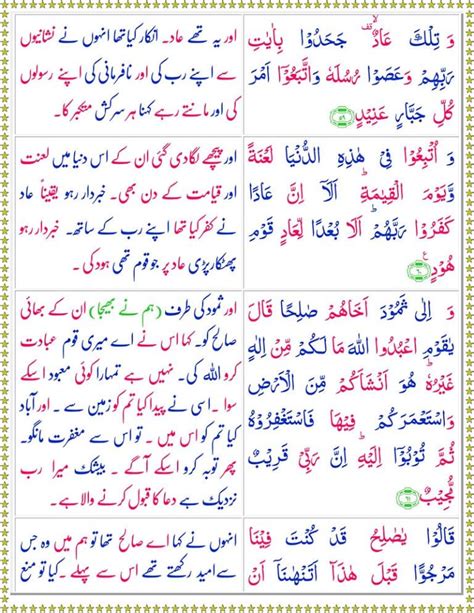 وَ تِلْكَ عَادٌ ۙ۫ جَحَدُوْا بِاٰیٰتِ
رَبِّهِمْ وَعَصَوْا رُسُلَهٗ وَاتَّبَعُوْۤا اَمْرَ
كُلِّ جَبَّارٍ عَنِیْدٍ ﴿٥٩﴾
اور یہ تھے عاد۔ انکار کیا تھا انہوں نے نشانیوں
سے اپنے رب کی اور نافرمانی کی اپنے رسولوں
کی اور مانتے رہے کہنا ہر سرکش متکبر کا۔
وَ اُتْبِعُوْا فِیْ هٰذِهِ الدُّنْیَا لَعْنَةً
وَّیَوْمَ الْقِیٰمَةِ ؕ اَلَاۤ اِنَّ عَادًا
كَفَرُوْا رَبَّهُمْ ؕ اَلَا بُعْدًا لِّعَادٍ قَوْمِ
هُوْدٍ ﴿٦٠﴾ ع
اور پیچھے لگادی گئی ان کے اس دنیا میں لعنت
اور قیامت کے دن بھی۔ خبردار رہو یقیناً عاد
نے کفر کیا تھا اپنے رب کے ساتھ۔ خبردار رہو
پھٹکار پڑی عاد پر جو قوم تھی ہود کی۔
وَ اِلٰی ثَمُوْدَ اَخَاهُمْ صٰلِحًا ۘ قَالَ
یٰقَوْمِ اعْبُدُوا اللّٰهَ مَا لَكُمْ مِّنْ اِلٰهٍ
غَیْرُهٗ ؕ هُوَ اَنْشَاَكُمْ مِّنَ الْاَرْضِ
وَاسْتَعْمَرَكُمْ فِیْهَا فَاسْتَغْفِرُوْهُ
ثُمَّ تُوْبُوْۤا اِلَیْهِ ؕ اِنَّ رَبِّیْ قَرِیْبٌ
مُّجِیْبٌ ﴿٦١﴾
اور ثمود کی طرف (ہم نے بھیجا) ان کے بھائی
صالح کو۔ کہا اس نے اے میری قوم عبادت
کرو اللہ کی۔ نہیں ہے تمہارا کوئی معبود اسکے
سوا۔ اسی نے پیدا کیا تم کو زمین سے۔ اور آباد
کیا تم کو اس میں۔ تو اس سے مغفرت مانگو۔
پھر توبہ کرو اسکے آگے۔ بیشک میرا رب
نزدیک ہے دعا کا قبول کرنے والاہے۔
قَالُوْا یٰصٰلِحُ قَدْ كُنْتَ فِیْنَا
مَرْجُوًّا قَبْلَ هٰذَاۤ اَتَنْهٰىنَاۤ اَنْ
انہوں نے کہا اے صالح تھا تو ہم میں وہ جس
سےامید رکھتے تھے اس سے پہلے ۔کیا تو منع